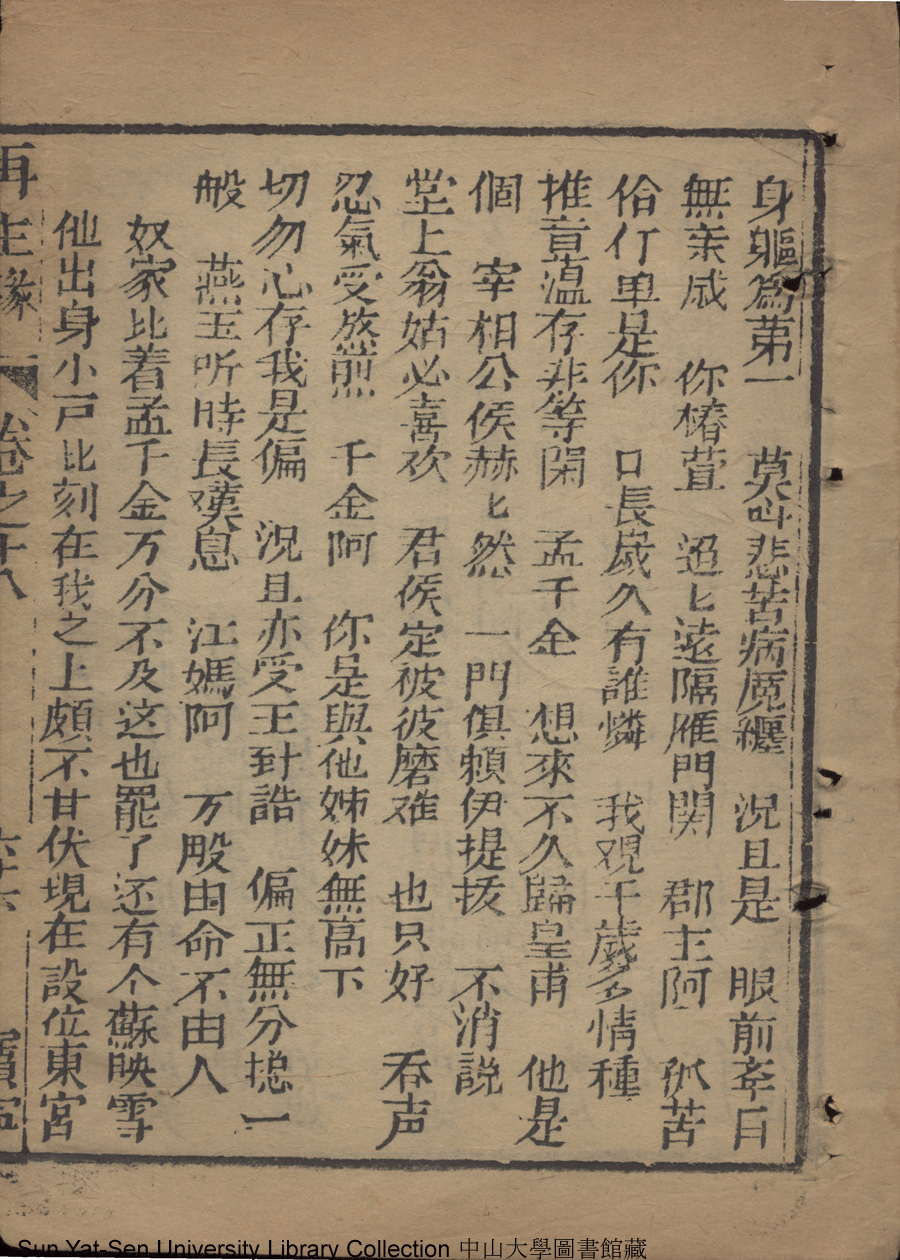 身軀為苐一　莫叫悲苦病魔纏　況且是　眼前幸日
無亲戚　你椿萱　迢匕遠隔雁門関　郡主阿　孤苦
伶仃單是你　日長歲久有誰憐　我观千歲多情種
推意溫存非等閑　孟千金　想來不久歸皇甫　他是
個　宰相公侯赫匕然　一門俱頼伊提拔　不消説
堂上翁姑必喜欢　君侯定彼彼磨难　也只好　吞声
忍氣受熬煎　千金阿　你是與他姊妹無高下
切勿心存我是偏　況且亦受王封誥　偏正無分摠一
般　燕玉听時長嘆息　江媽阿　万般由命不由人
奴家比着孟千金万分不及这也罷了还有个蘇映雪
他出身小戸比刻在我之上頗不甘伏現在設位東宮
再生緣　卷之十八
Sun Yat-Sen University Library Collection 中山大學圖書館藏